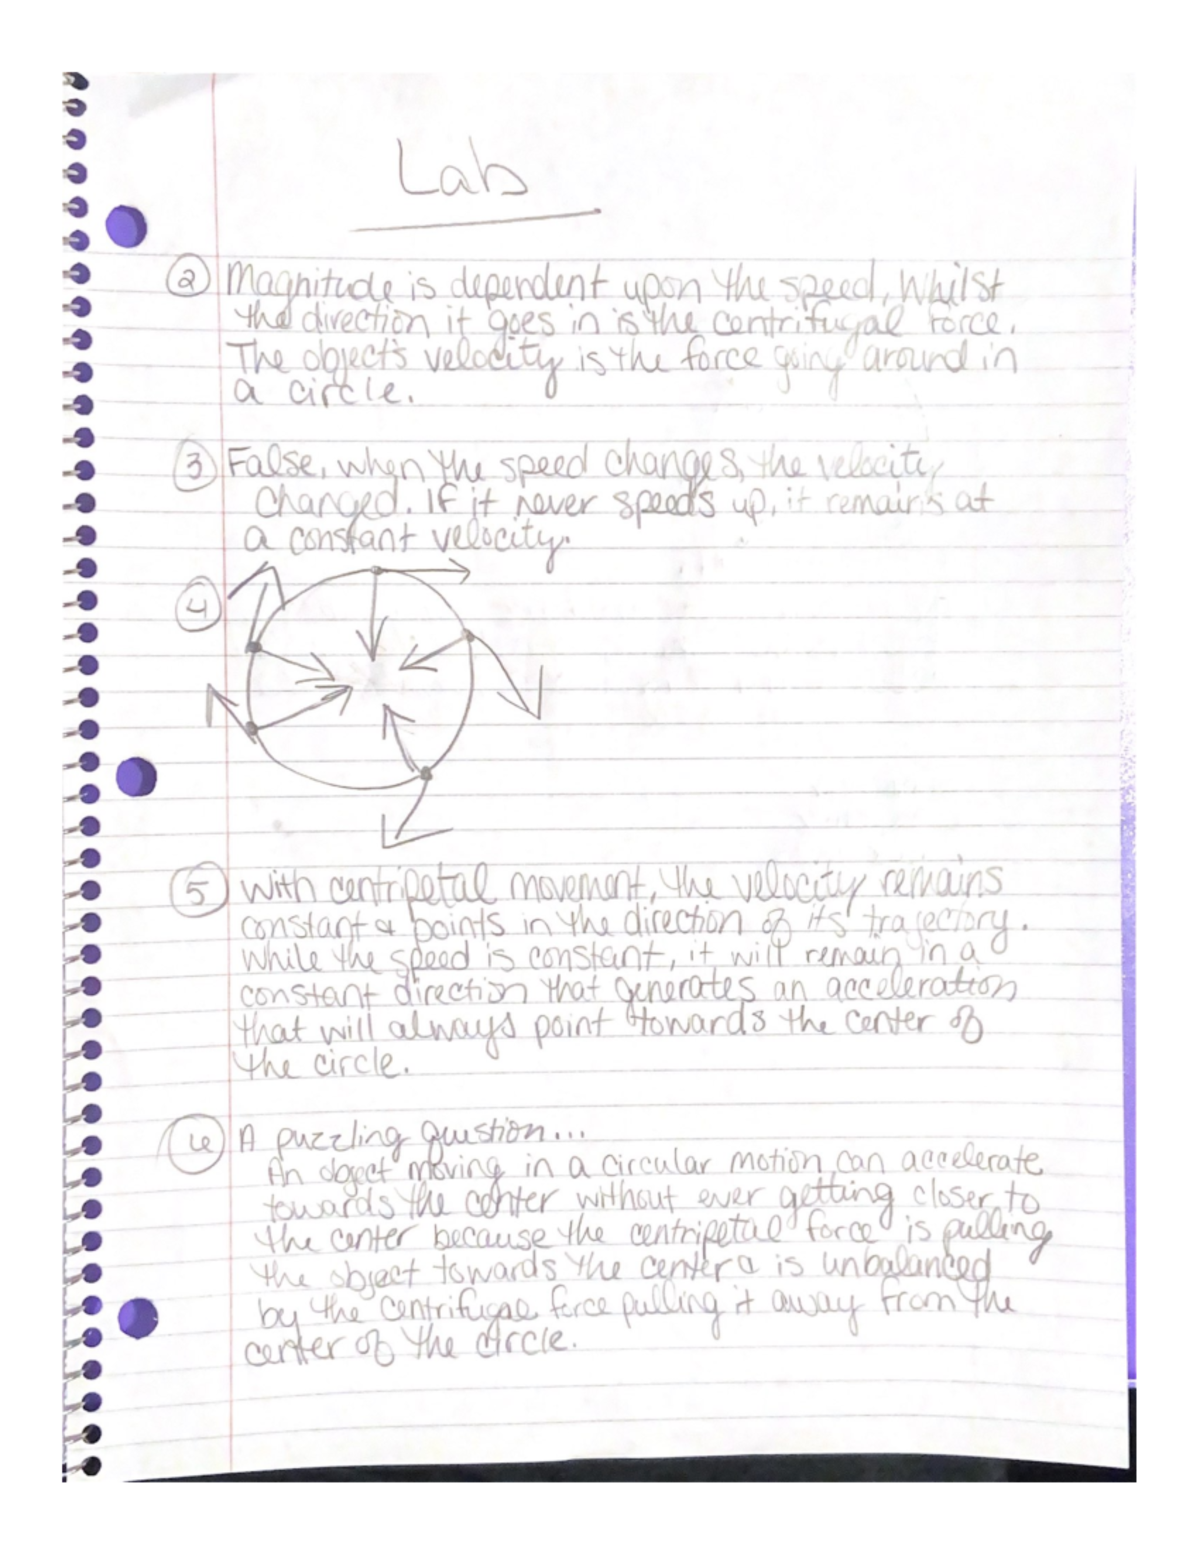 Lab
② Magnitude is dependent upon the speed, Whilst
the direction it goes in is the centrifugal force.
The object's velocity is the force going around in
a circle.
③ False, when the speed changes, the velocity
changed. If it never speeds up, it remains at
a constant velocity.
④
⑤ With centripetal movement, the velocity remains
constant & points in the direction of its trajectory.
While the speed is constant, it will remain in a
constant direction that generates an acceleration
that will always point towards the center of
the circle.
⑥ A puzzling question...
An object moving in a circular motion can accelerate
towards the center without ever getting closer to
the center because the centripetal force is pulling
the object towards the center & is unbalanced
by the centrifugal force pulling it away from the
center of the circle.